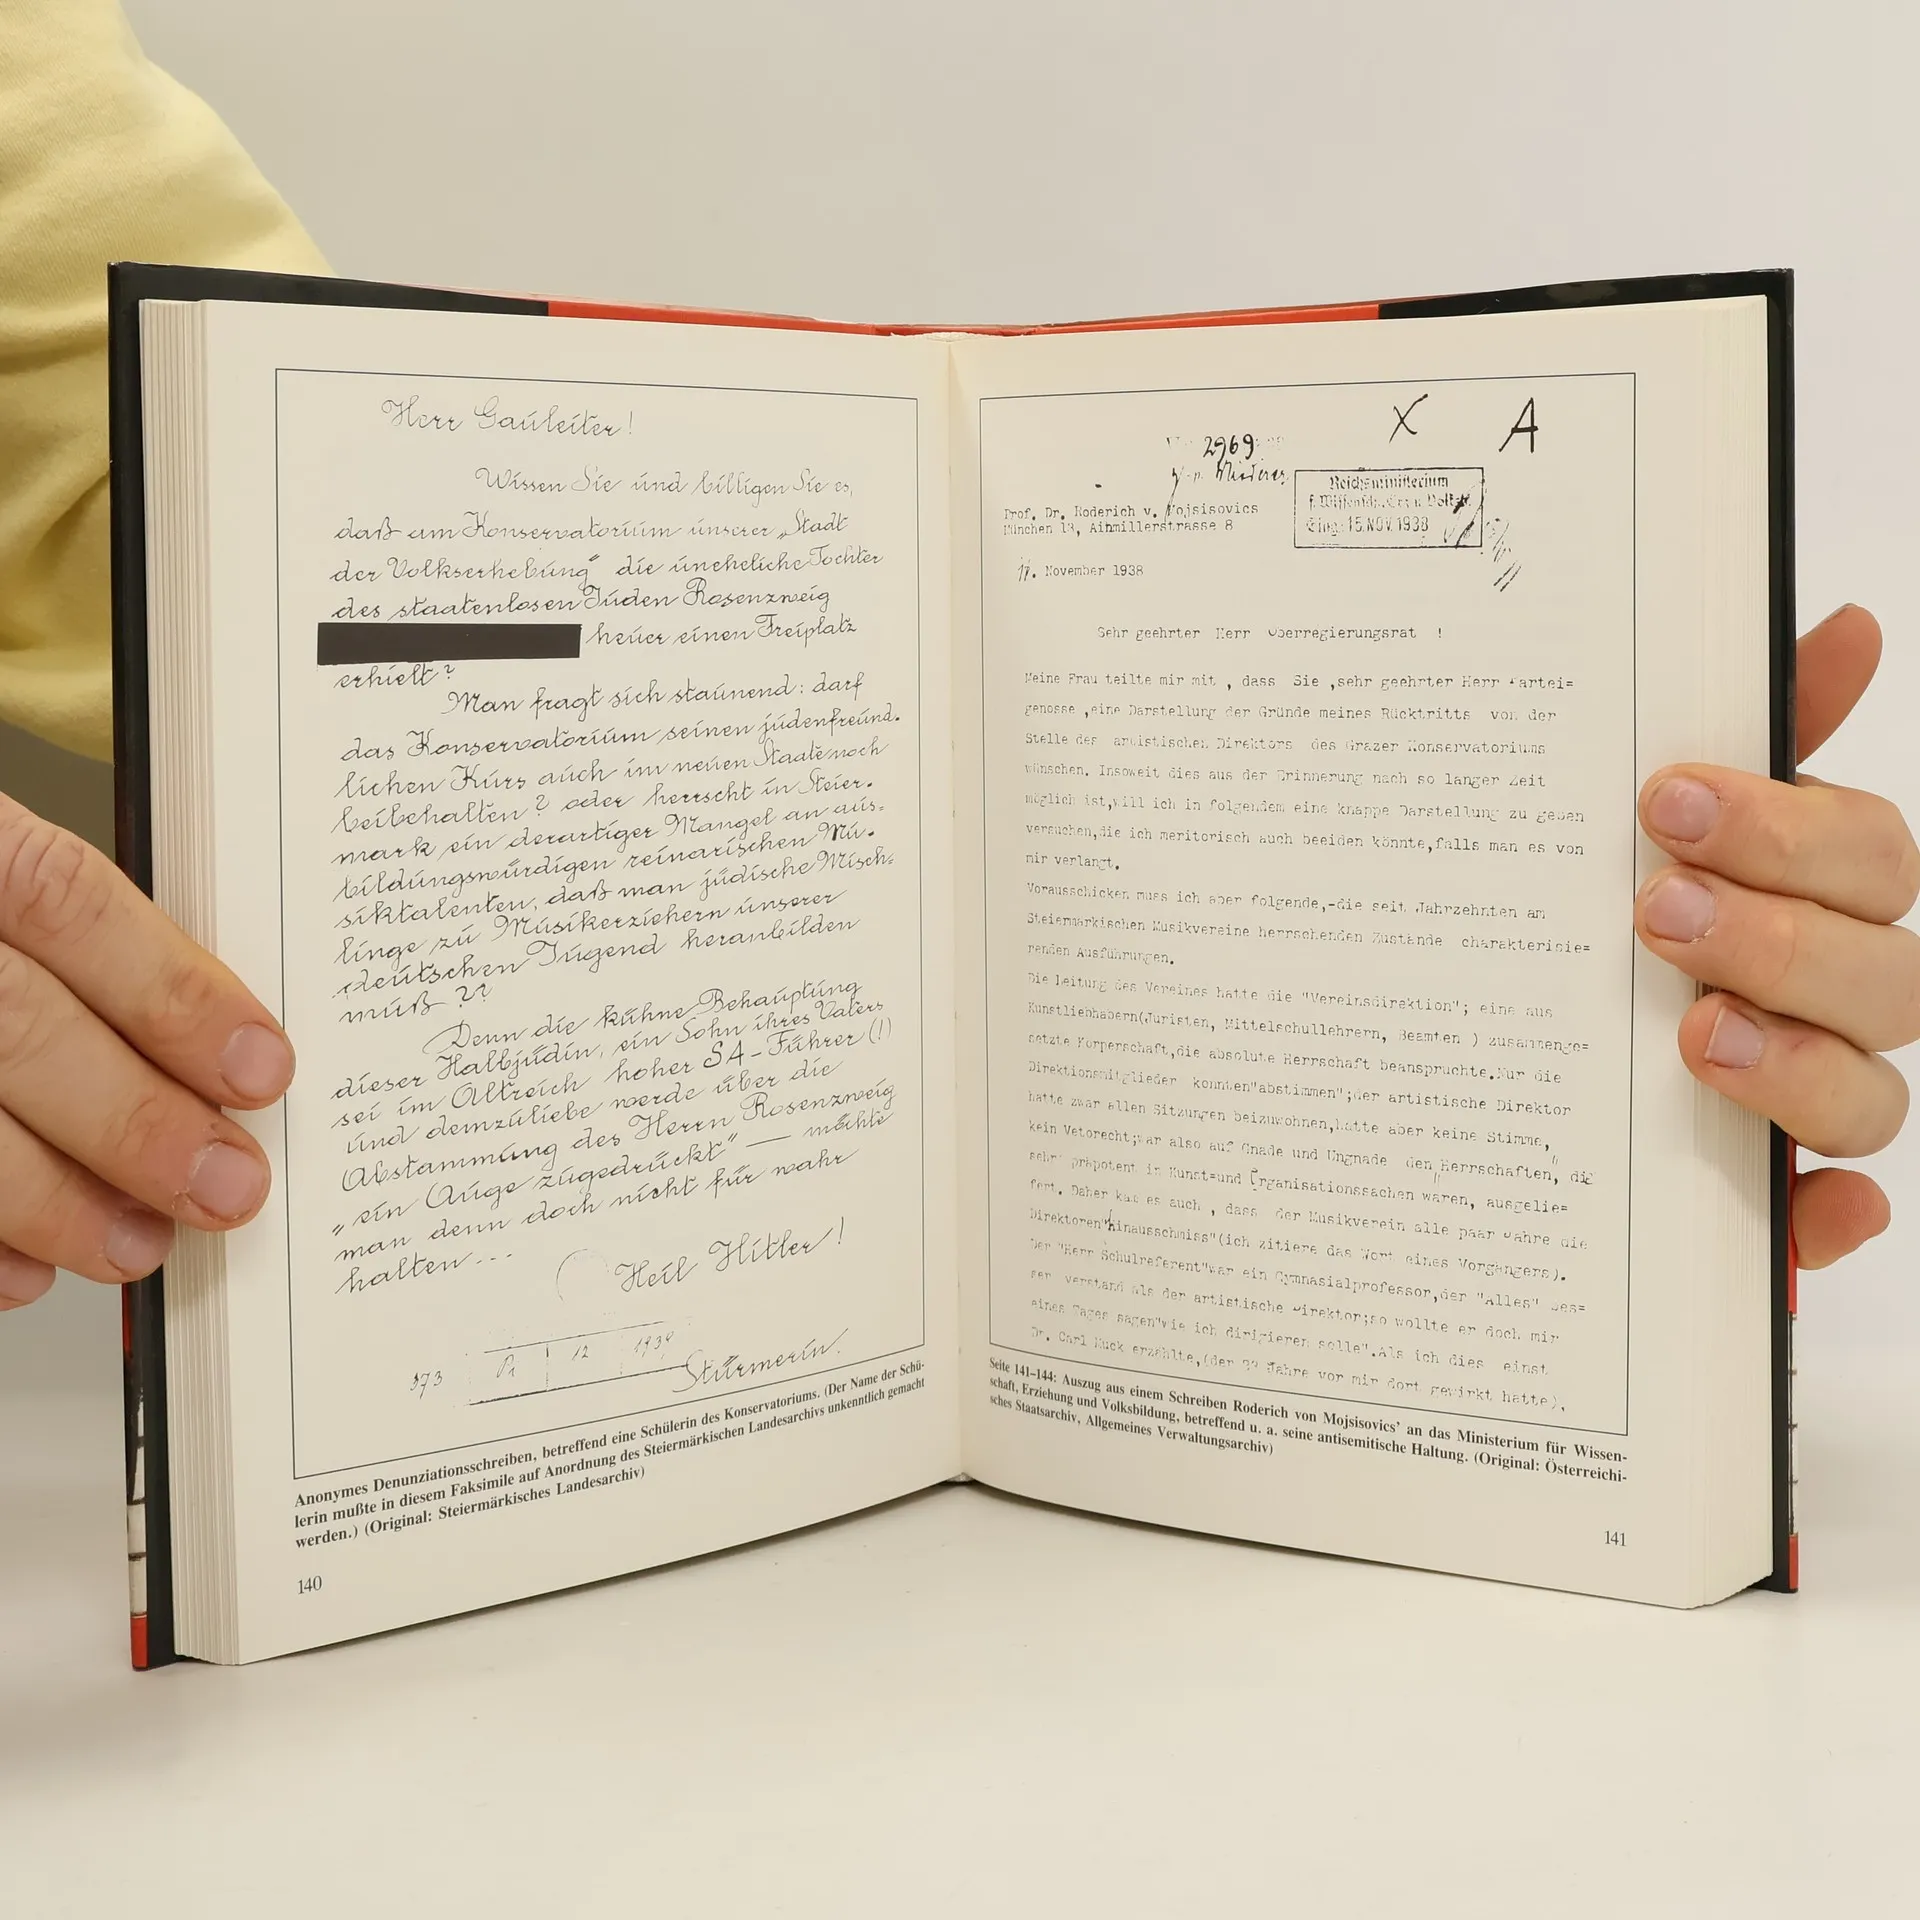 Herr Gauleiter!
Wissen Sie und billigen Sie es,
daß am Konservatorium unserer „Stadt
der Volkserhebung" die uneheliche Tochter
des staatenlosen Juden Rosenzweig
heuer einen Freiplatz
erhielt?
Man fragt sich staunend: darf
das Konservatorium seinen judenfreund-
lichen Kurs auch im neuen Staate noch
beibehalten? oder herrscht in Steier-
mark ein derartiger Mangel an aus-
bildungswürdigen reinarischen Mu-
siktalenten, daß man jüdische Misch-
linge zu Musikerziehern unserer
deutschen Jugend heranbilden
muß??
Denn die kühne Behauptung
dieser Halbjüdin, ein Sohn ihres Vaters
sei im Altreich hoher SA-Führer (!)
und demzuliebe werde über die
Abstammung des Herrn Rosenzweig
„ein Auge zugedrückt" — möchte
man denn doch nicht für wahr
halten...
Heil Hitler!
373 12
Stürmerin.
Anonymes Denunziationsschreiben, betreffend eine Schülerin des Konservatoriums. (Der Name der Schü-
lerin mußte in diesem Faksimile auf Anordnung des Steiermärkischen Landesarchivs unkenntlich gemacht
werden.) (Original: Steiermärkisches Landesarchiv)
140
X A
2969
Reichsministerium
Eing. 15. NOV. 1938
Prof. Dr. Roderich v. Mojsisovics
München 13, Ainmillerstrasse 8
November 1938
Sehr geehrter Herr Oberregierungsrat !
Meine Frau teilte mir mit , dass Sie ,sehr geehrter Herr Partei=
genosse ,eine Darstellung der Gründe meines Rücktritts von der
Stelle des artistischen Direktors des Grazer Konservatoriums
wünschen. Insoweit dies aus der Erinnerung nach so langer Zeit
möglich ist,will ich in folgendem eine knappe Darstellung zu geben
versuchen,die ich meritorisch auch beeiden könnte,falls man es von
mir verlangt.
Vorausschicken muss ich aber folgende,-die seit Jahrzehnten am
Steiermärkischen Musikvereine herrschenden Zustände charakterisie=
renden Ausführungen.
Die Leitung des Vereines hatte die "Vereinsdirektion"; eine aus
Kunstliebhabern(Juristen, Mittelschullehrern, Beamten ) zusammenge=
setzte Körperschaft,die absolute Herrschaft beanspruchte.Nur die
Direktionsmitglieder konnten"abstimmen";der artistische Direktor
hatte zwar allen Sitzungen beizuwohnen,hatte aber keine Stimme,
kein Vetorecht;war also auf Gnade und Ungnade den "Herrschaften," die
sehr präpotent in Kunst=und Organisationssachen waren, ausgelie=
fert. Daher kam es auch , dass der Musikverein alle paar Jahre die
Direktoren"hinausschmiss"(ich zitiere das Wort eines Vorgängers).
Der "Herr Schulreferent"war ein Gymnasialprofessor,der "Alles" bes=
ser verstand als der artistische Direktor;so wollte er doch mir
eines Tages sagen"wie ich dirigieren solle".Als ich dies einst
Dr. Carl Muck erzählte,(der Jahre vor mir dort gewirkt hatte),
Seite 141–144: Auszug aus einem Schreiben Roderich von Mojsisovics' an das Ministerium für Wissen-
schaft, Erziehung und Volksbildung, betreffend u. a. seine antisemitische Haltung. (Original: Österreichi-
sches Staatsarchiv, Allgemeines Verwaltungsarchiv)
141